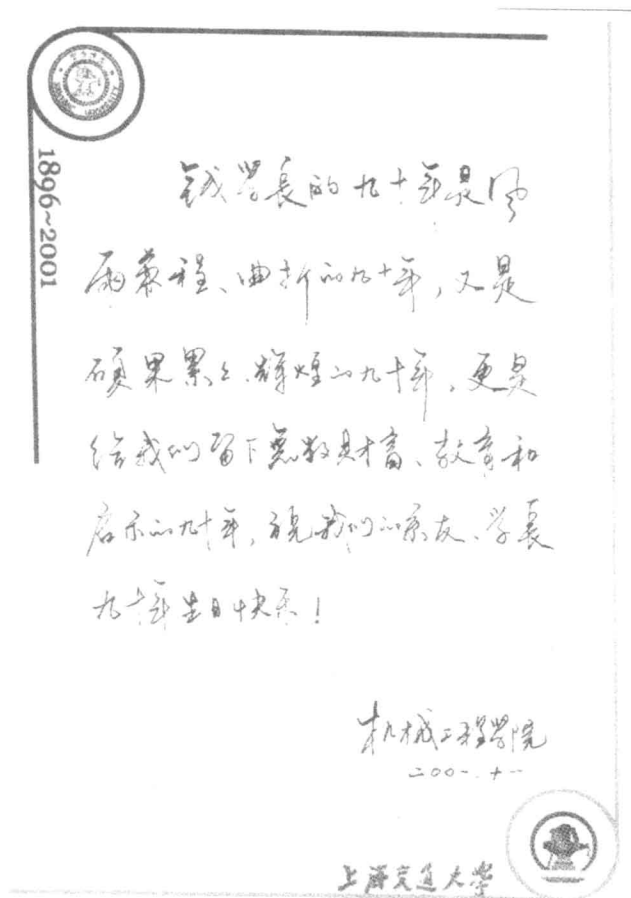 1896~2001
钱学长的九十年是风
雨兼程、曲折的九十年，又是
硕果累累、辉煌的九十年，更是
给我们留下无数财富、教育和
启示的九十年，祝我们的系友、学长
九十年生日快乐！
机械工程学院
二〇〇一.十一
上海交通大学